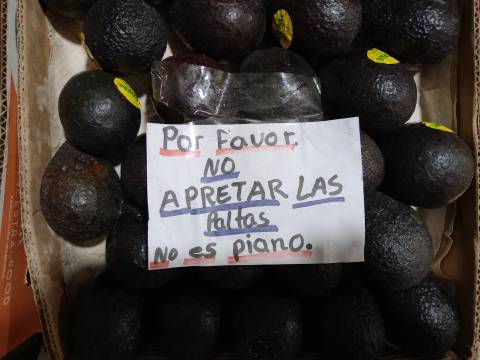 Por Favor.
NO
APRETAR LAS
Paltas
No es piano.